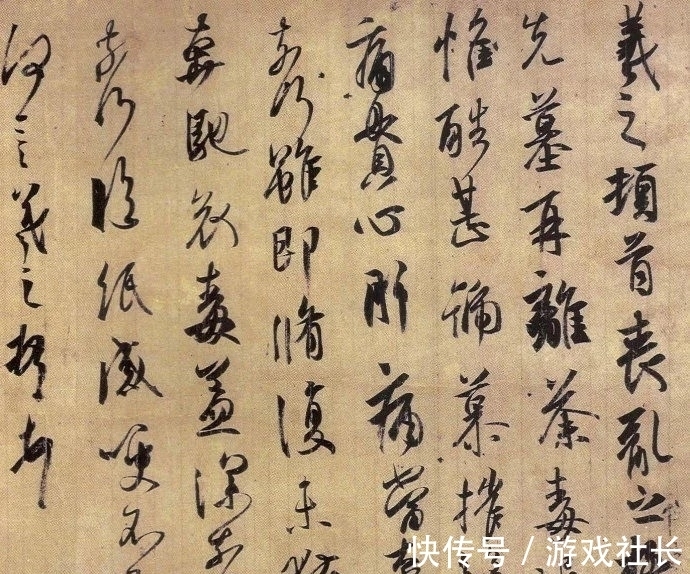 羲之頓首喪亂之
先墓再離荼毒
惟酷甚號慕摧
痛貫心肝痛當
柰何雖即脩復未
奔馳哀毒益深柰
柰何臨紙感哽不
何言羲之頓首
快传号 / 游戏社长